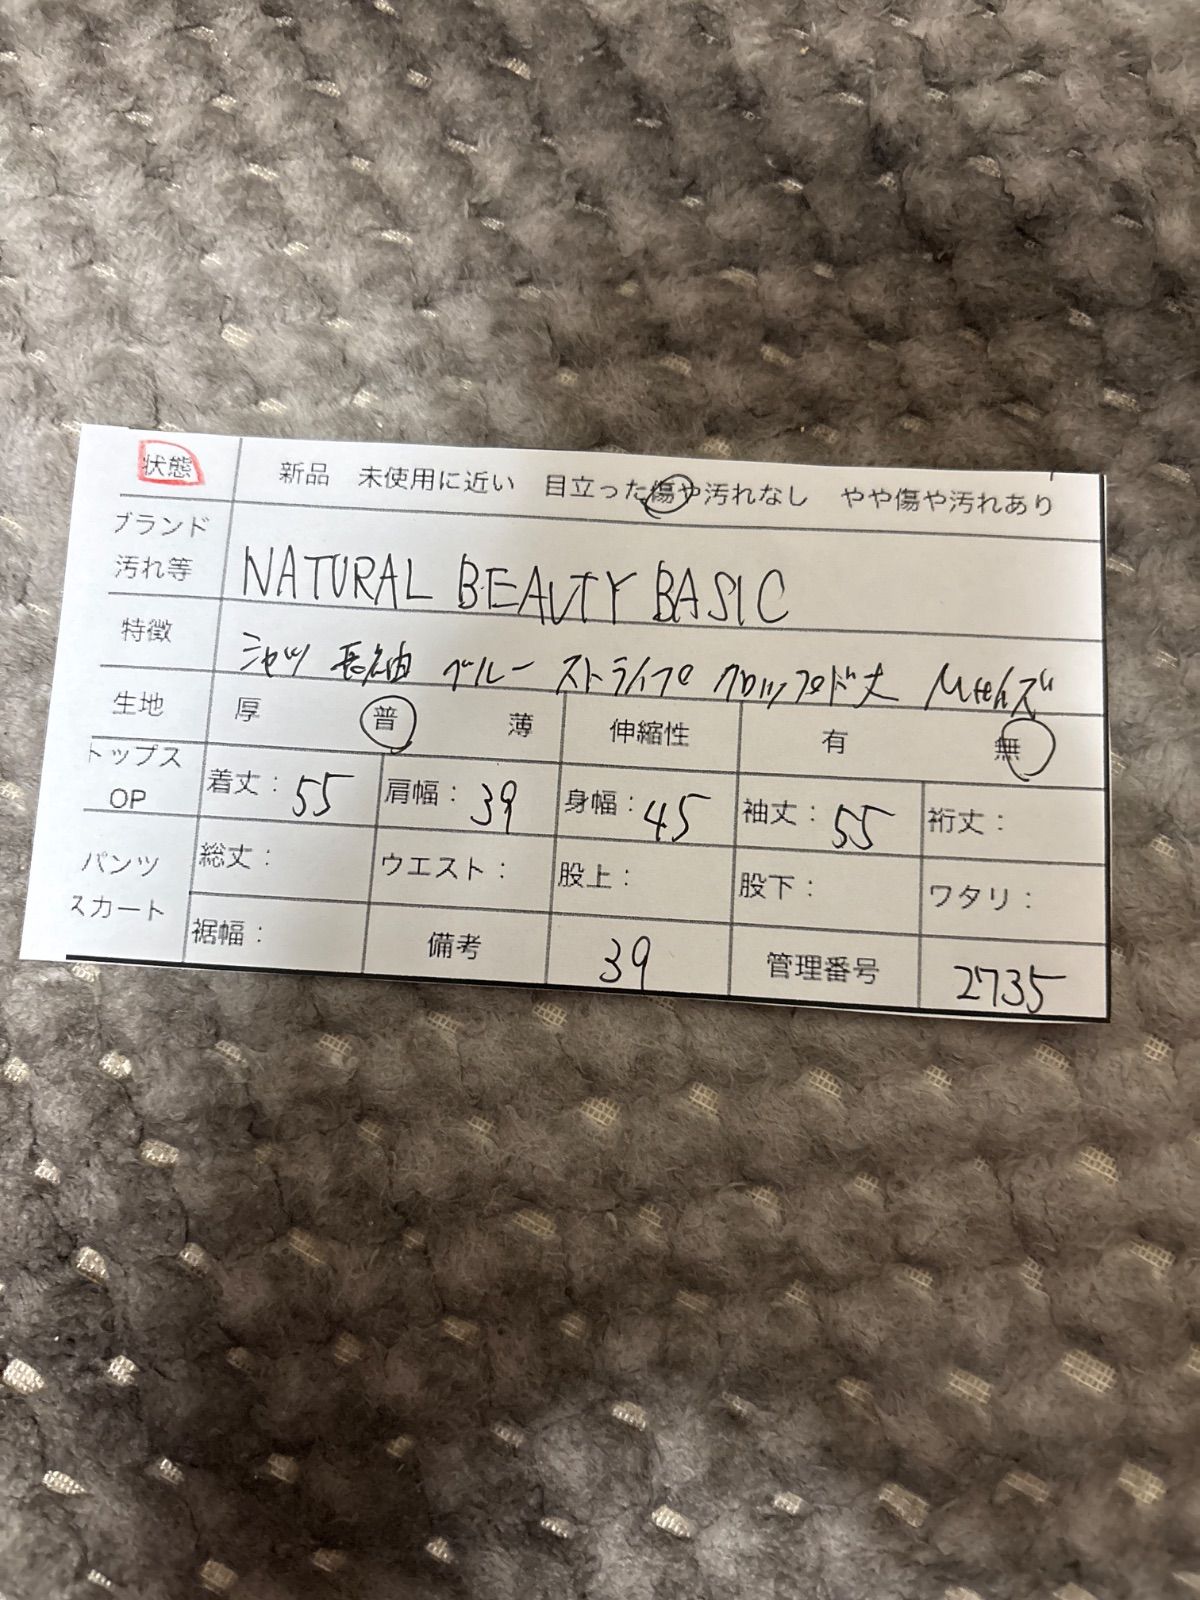 状態 新品 未使用に近い 目立った傷や汚れなし やや傷や汚れあり
ブランド
汚れ等 NATURAL BEAUTY BASIC
特徴 シャツ 長袖 ブルー ストライプ クロップド丈 Mサイズ
生地 厚 普 薄 伸縮性 有 無
トップス
OP 着丈：55 肩幅：39 身幅：45 袖丈：55 裄丈：
パンツ
スカート 総丈： ウエスト： 股上： 股下： ワタリ：
裾幅： 備考 39 管理番号 2735